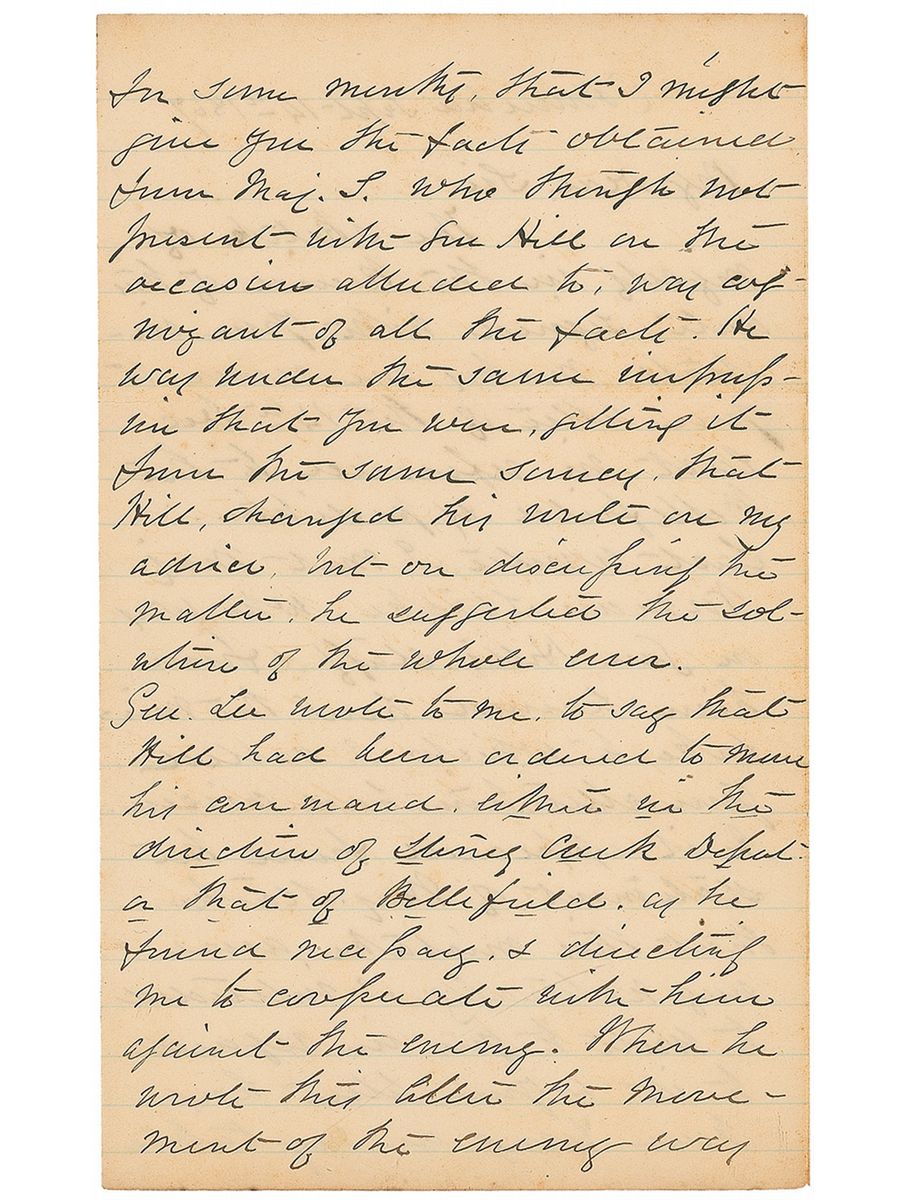 for some months, that I might
give you the facts obtained
from Maj. S. who though not
present with Gen Hill on the
occasion alluded to, was cog-
nizant of all the facts. He
was under the same impress-
ion that you were, getting it
from the same source, that
Hill, changed his route on my
advice, but on discussing the
matter, he suggested the sol-
ution of the whole error.
Gen. Lee wrote to me, to say that
Hill had been ordered to move
his command, either in the
direction of Stoney Creek Depot
or that of Bellefield, as he
found necessary, & directing
me to cooperate with him
against the enemy. When he
wrote this letter the move-
ment of the enemy was